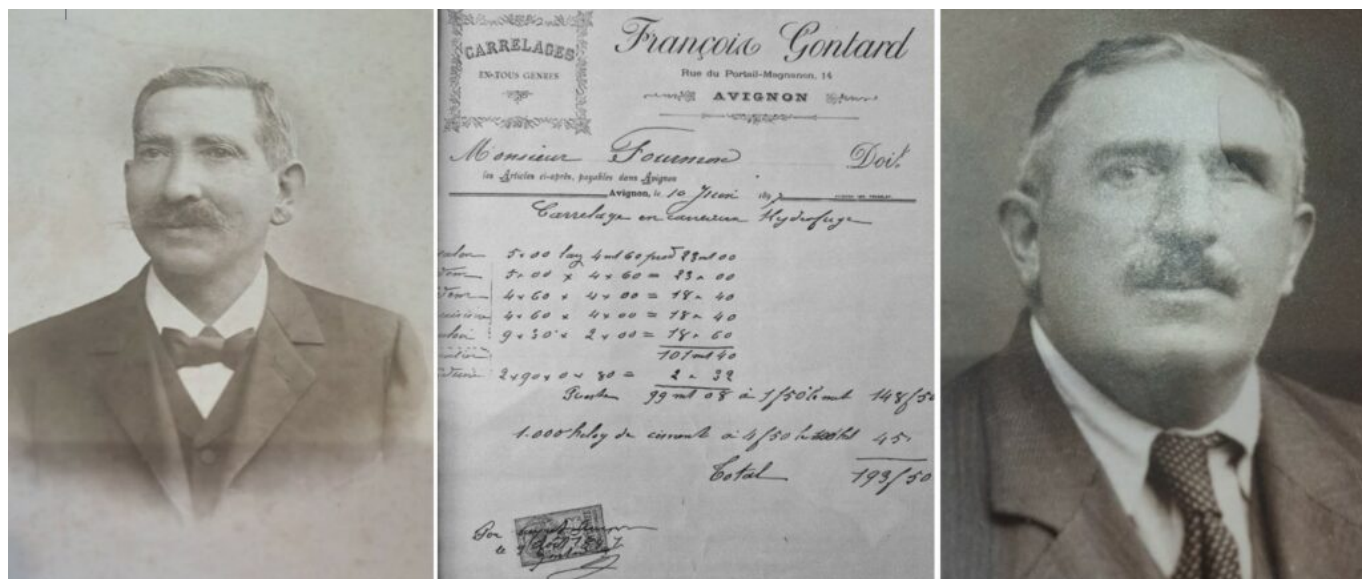 CARRELAGES
EN TOUS GENRES
François Gontard
Rue du Portail-Magnanen, 14
AVIGNON
Monsieur Fourmon Doit
les Articles ci-après, payables dans Avignon
Avignon, le 10 Juin 1897
Carrelage en carreaux Hydrofuge
5.00 4 60 23 00
5.00 x 4 x 60 = 23 00
4 x 60 x 4 x 00 = 18 40
4 x 60 x 4 x 00 = 18 40
9 x 30 x 2 x 00 = 18 60
101 mt 40
2 x 90 x 0 x 80 = 2 32
99 mt 08 à 1f50 le mt 148f50
1.000 de ciment à 4f50 45
Total 193f50
le Août 1897